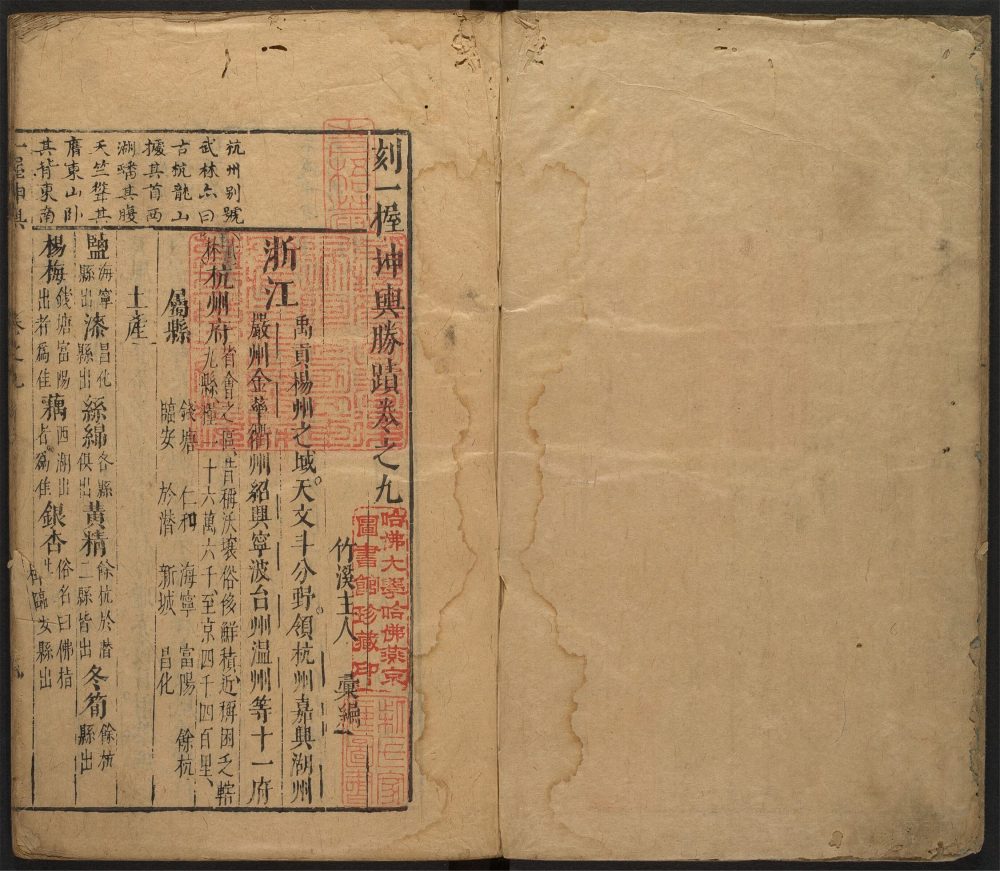 刻一握坤輿勝蹟卷之九
竹溪主人 彙編
浙江
禹貢楊州之域天文斗分野領杭州嘉興湖州
嚴州金華衢州紹興寧波台州溫州等十一府
杭州府
省會之區昔稱沃壤俗侈鮮積近稱困乏轄
九縣糧一十六萬六千至京四千四百里
屬縣
錢塘 仁和 海寧 富陽 餘杭
臨安 於潛 新城 昌化
土產
鹽 海寧縣出 漆 昌化縣出 絲綿 各縣俱出 黃精 餘杭於潛二縣皆出 冬筍 餘杭縣出
楊梅 錢塘富陽出者為佳 藕 西湖出者為佳 銀杏 俗名曰佛桔 臨安縣出
杭州别號
武林亦曰
古杭龍山
據其首西
湖蟠其腹
天竺聳其
膺東山卧
其背東南
卷之九
哈佛大學哈佛燕京
圖書館珍藏印